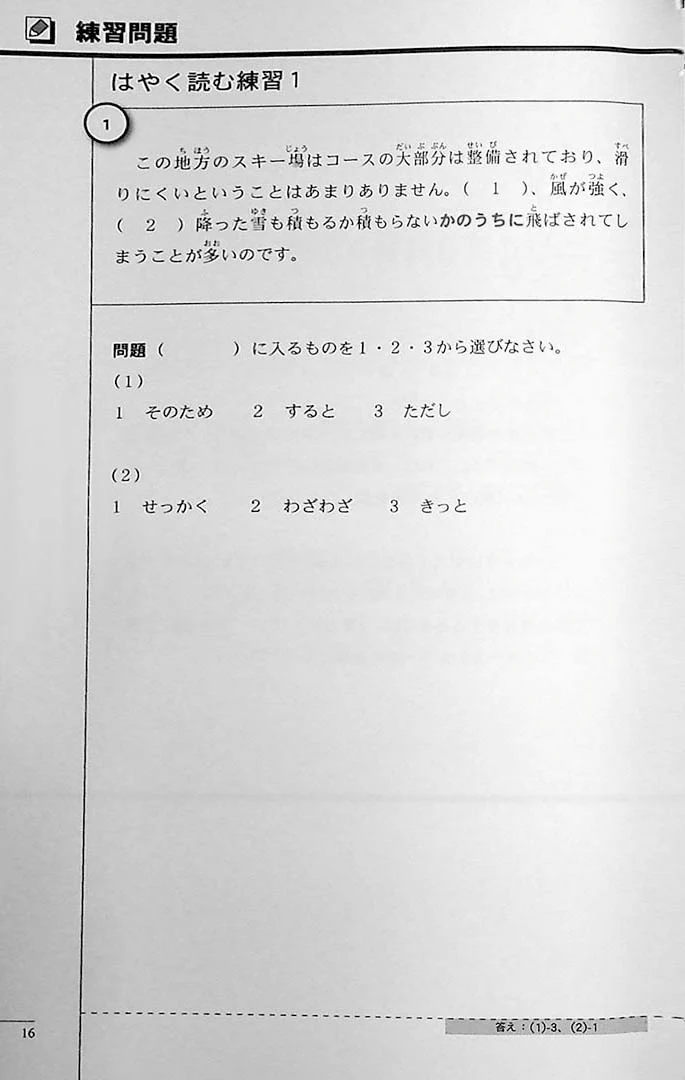 練習問題
はやく読む練習1
1
この地方のスキー場はコースの大部分は整備されており、滑
りにくいということはあまりありません。( 1 )、風が強く、
( 2 )降った雪も積もるか積もらないかのうちに飛ばされてし
まうことが多いのです。
問題( )に入るものを1・2・3から選びなさい。
(1)
1 そのため 2 すると 3 ただし
(2)
1 せっかく 2 わざわざ 3 きっと
答え:(1)-3、(2)-1
16